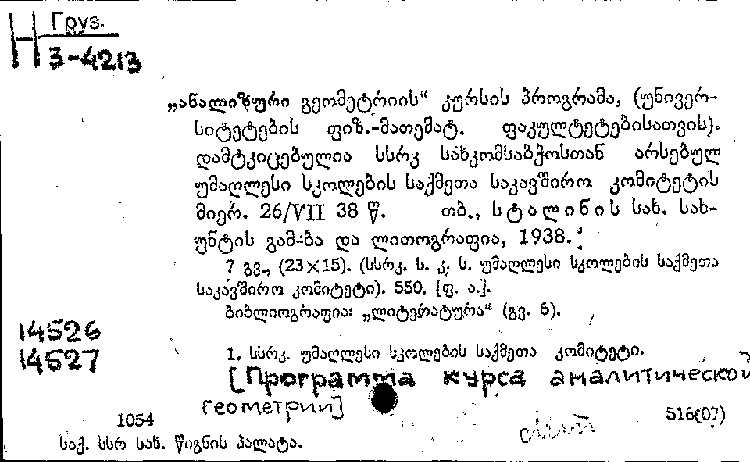 Н Груз.
3-4213
„ანალიზური გეომეტრიის“ კურსის პროგრამა, (უნივერ-
სიტეტების ფიზ.-მათემატ. ფაკულტეტებისათვის).
დამტკიცებულია სსრკ სახკომსაბჭოსთან არსებულ
უმაღლესი სკოლების საქმეთა საკავშირო კომიტეტის
მიერ. 26/VII 38 წ. თბ., სტალინის სახ. სახ-
უნტის გამ-ბა და ლითოგრაფია, 1938.
7 გვ., (23×15). (სსრკ. ს. კ. ს. უმაღლესი სკოლების საქმეთა
საკავშირო კომიტეტი). 550. [ფ. ა.].
ბიბლიოგრაფია: „ლიტერატურა“ (გვ. 6).
14526
14527
1. სსრკ. უმაღლესი სკოლების საქმეთა კომიტეტი.
[Программа курса аналитической
геометрии]
1054
516(07)
საქ. სსრ სახ. წიგნის პალატა.